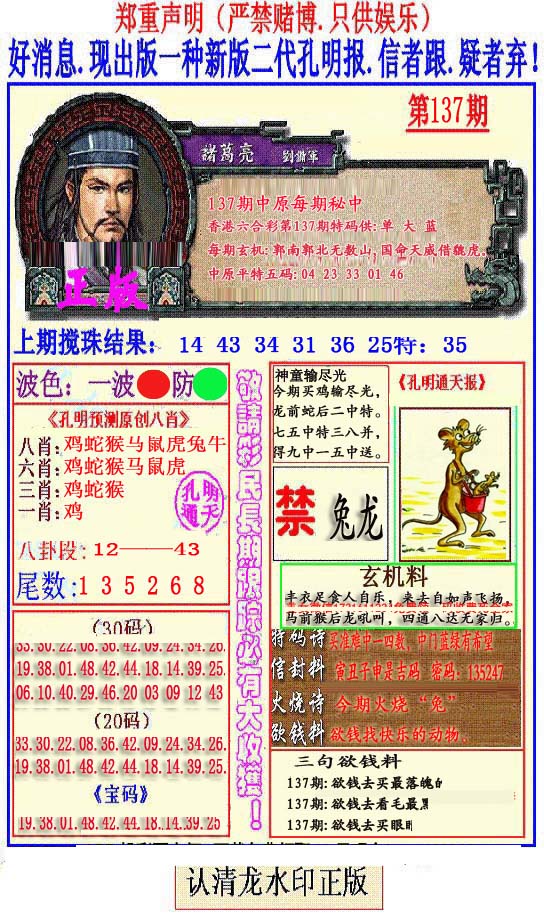 郑重声明（严禁赌博.只供娱乐）
好消息.现出版一种新版二代孔明报.信者跟.疑者弃!
第137期
諸葛亮 劉備軍
137期中原每期秘中
香港六合彩第137期特码供:单 大 蓝
每期玄机:郭南郭北无数山,国命天威借魏虎.
中原平特五码:04 23 33 01 46
正版
上期搅珠结果： 14 43 34 31 36 25特：35
波色：一波 防
《孔明预测原创八肖》
八肖:鸡蛇猴马鼠虎兔牛
六肖:鸡蛇猴马鼠虎
三肖:鸡蛇猴
一肖:鸡
孔明
通天
八卦段:12——43
尾数:135268
(30码)
33.30.22.08.36.42.09.24.34.26.
19.38.01.48.42.44.18.14.39.25.
06.10.40.29.46.20 03 09 12 43
(20码)
33.30.22.08.36.42.09.24.34.26.
19.38.01.48.42.44.18.14.39.25.
《宝码》
19.38.01.48.42.44.18.14.39.25
敬請彩民長期跟踪必有大收獲！
神童输尽光
今期买鸡输尽光，
龙前蛇后二中特。
七五中特三八并，
得九中一五中送。
《孔明通天报》
禁 兔龙
玄机料
丰衣足食人自乐，来去自如声飞扬
马前猴后龙吼叫，四通八达无家归。
特码诗 买准难中一四数，中门蓝绿有希望
信封料 寅丑子申是吉码 密码：135247
火烧诗 今期火烧“兔”
欲钱料 欲钱找快乐的动物.
三句欲钱料
137期:欲钱去买最落魄的
137期:欲钱去看毛最黑
137期:欲钱去买眼
认清龙水印正版